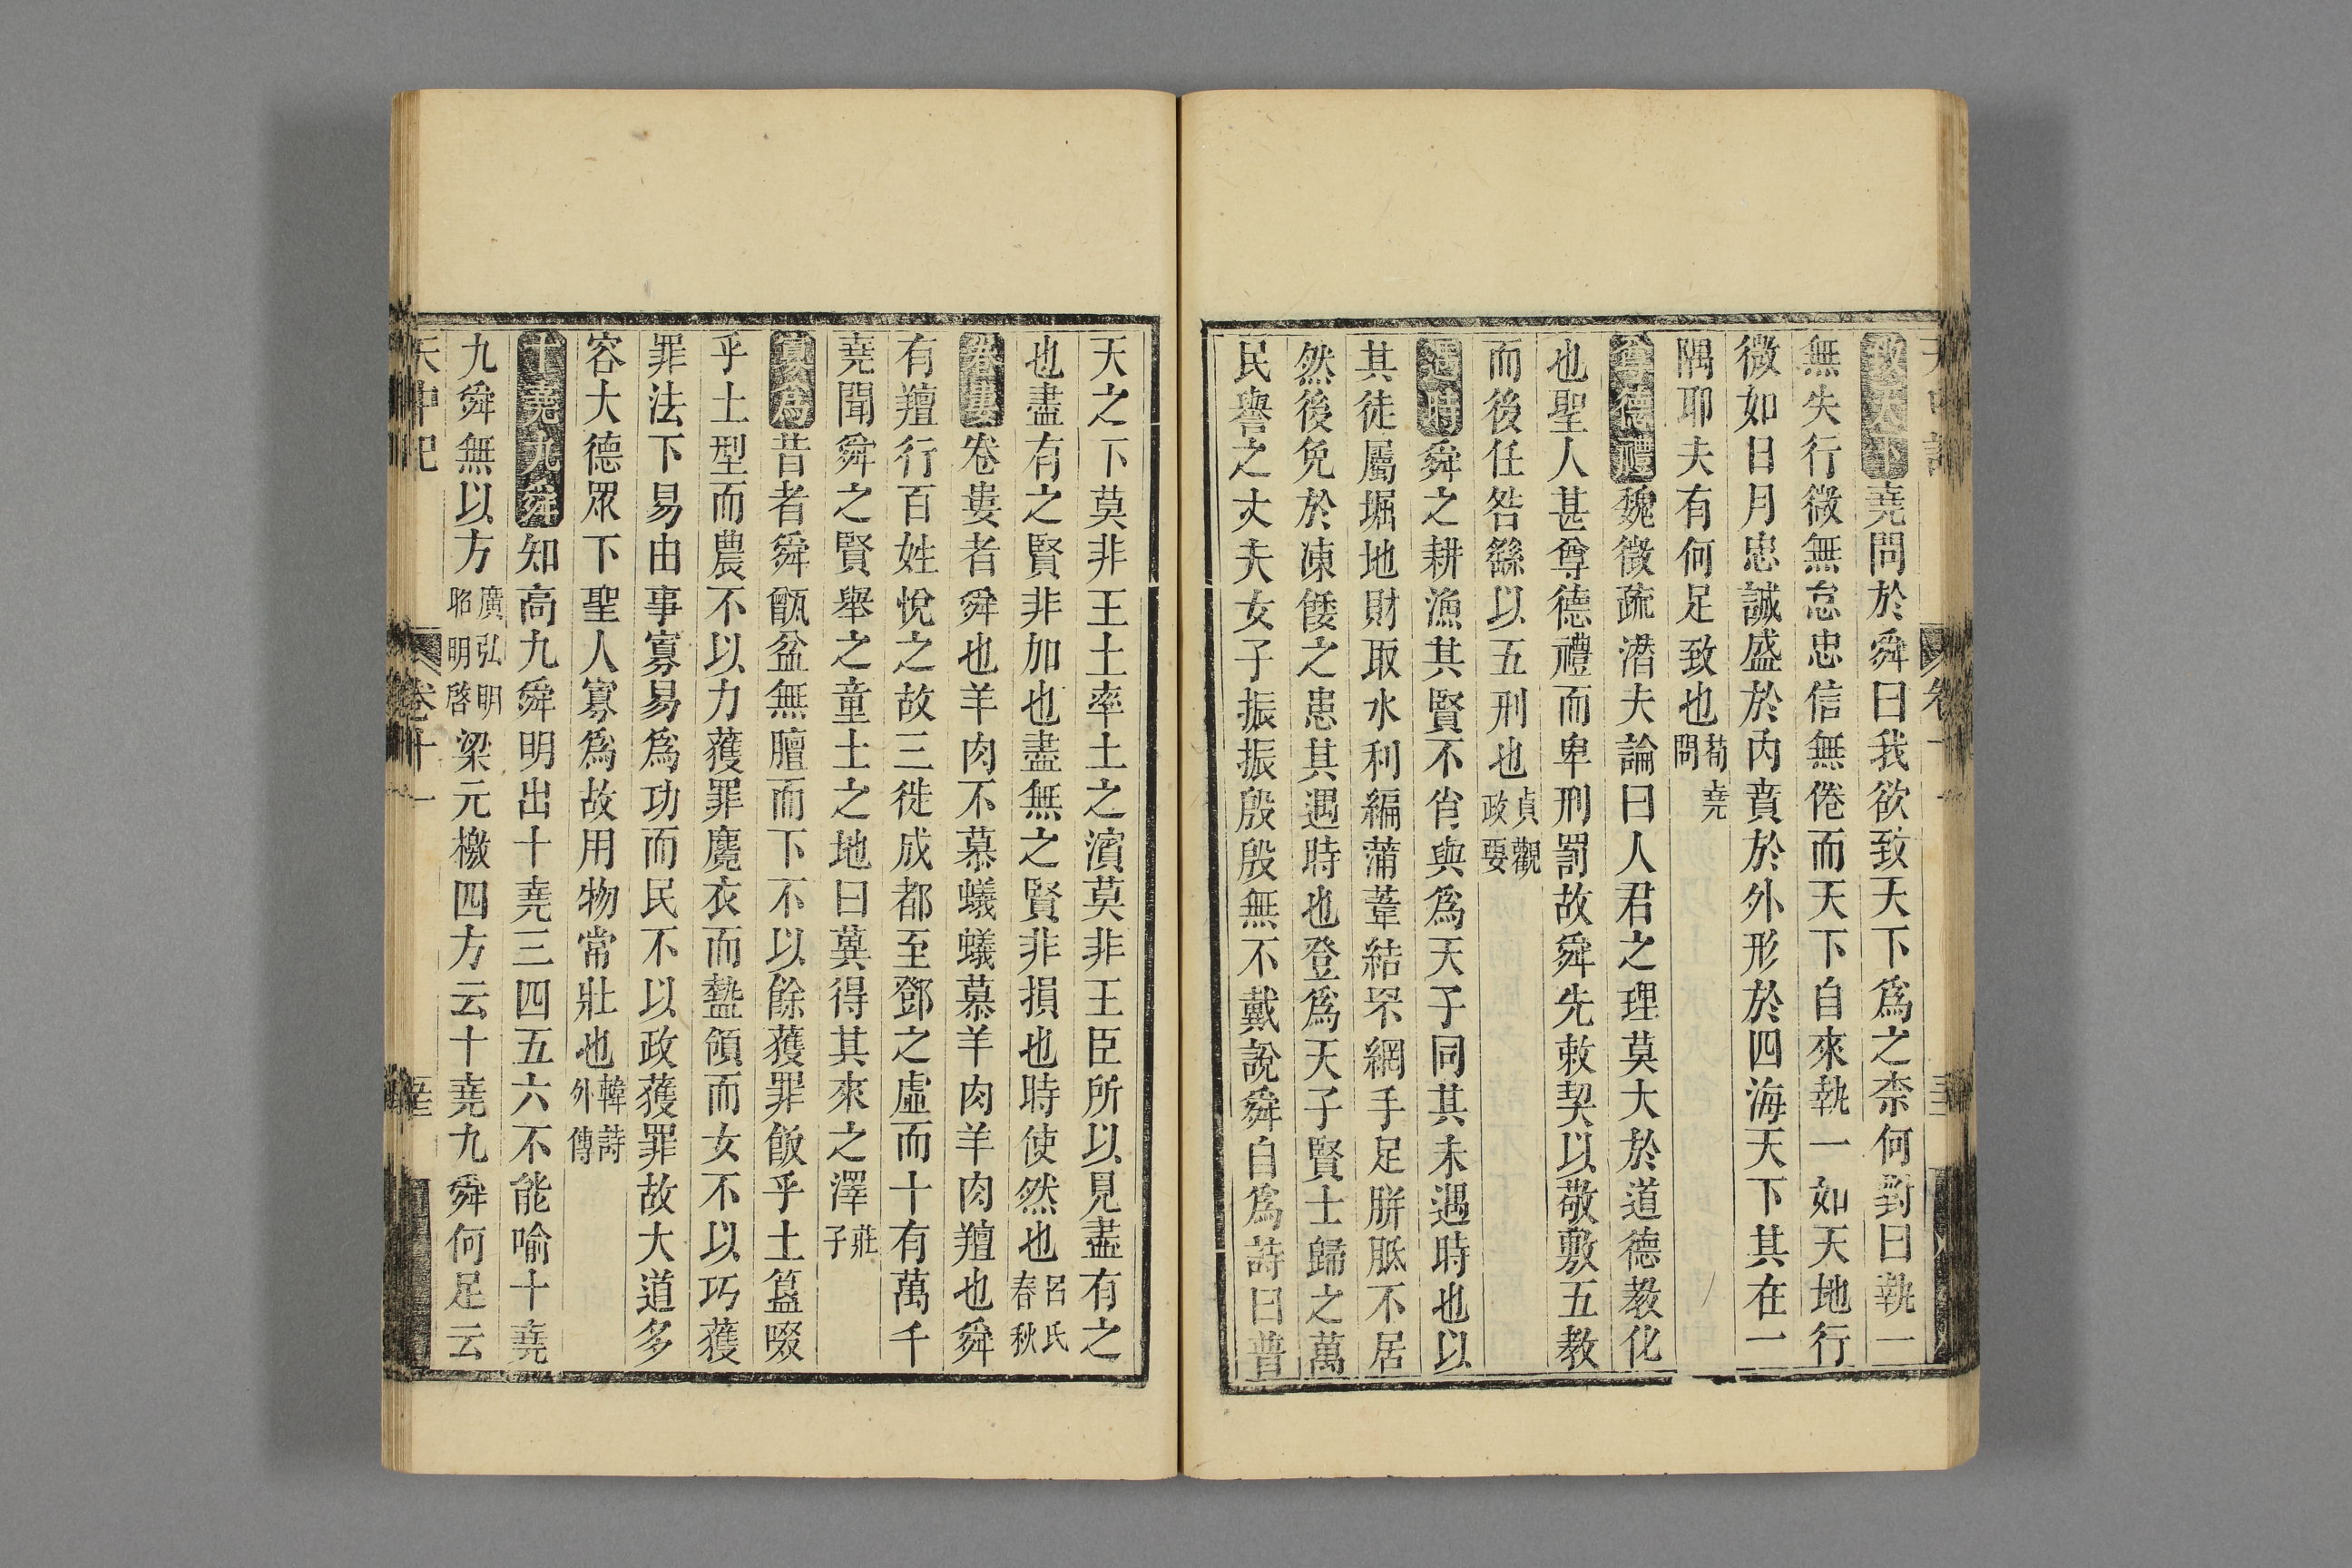 致天下堯問於舜曰我欲致天下爲之柰何對曰執一
無失行微無怠忠信無倦而天下自來執一如天地行
微如日月忠誠盛於內賁於外形於四海天下其在一
隅耶夫有何足致也荀堯問
尊德禮魏徵疏潜夫論曰人君之理莫大於道德教化
也聖人甚尊德禮而卑刑罰故舜先敕契以敬敷五教
而後任咎繇以五刑也貞觀政要
遇時舜之耕漁其賢不肖與爲天子同其未遇時也以
其徒屬堀地財取水利編蒲葦結罘網手足胼胝不居
然後免於凍餒之患其遇時也登爲天子賢士歸之萬
民譽之丈夫女子振振殷殷無不戴說舜自爲詩曰普
天之下莫非王土率土之濱莫非王臣所以見盡有之
也盡有之賢非加也盡無之賢非損也時使然也呂氏春秋
卷婁卷婁者舜也羊肉不慕蟻蟻慕羊肉羊肉羶也舜
有羶行百姓悅之故三徙成都至鄧之虛而十有萬千
堯聞舜之賢舉之童土之地曰冀得其來之澤莊子
寡爲昔者舜甑盆無膻而下不以餘獲罪飯乎土簋啜
乎土型而農不以力獲罪麑衣而盩領而女不以巧獲
罪法下易由事寡易爲功而民不以政獲罪故大道多
容大德眾下聖人寡爲故用物常壯也韓詩外傳
十堯九舜知高九舜明出十堯三四五六不能喻十堯
九舜無以方廣弘明昭明啓梁元檄四方云十堯九舜何足云
天中記 卷十一